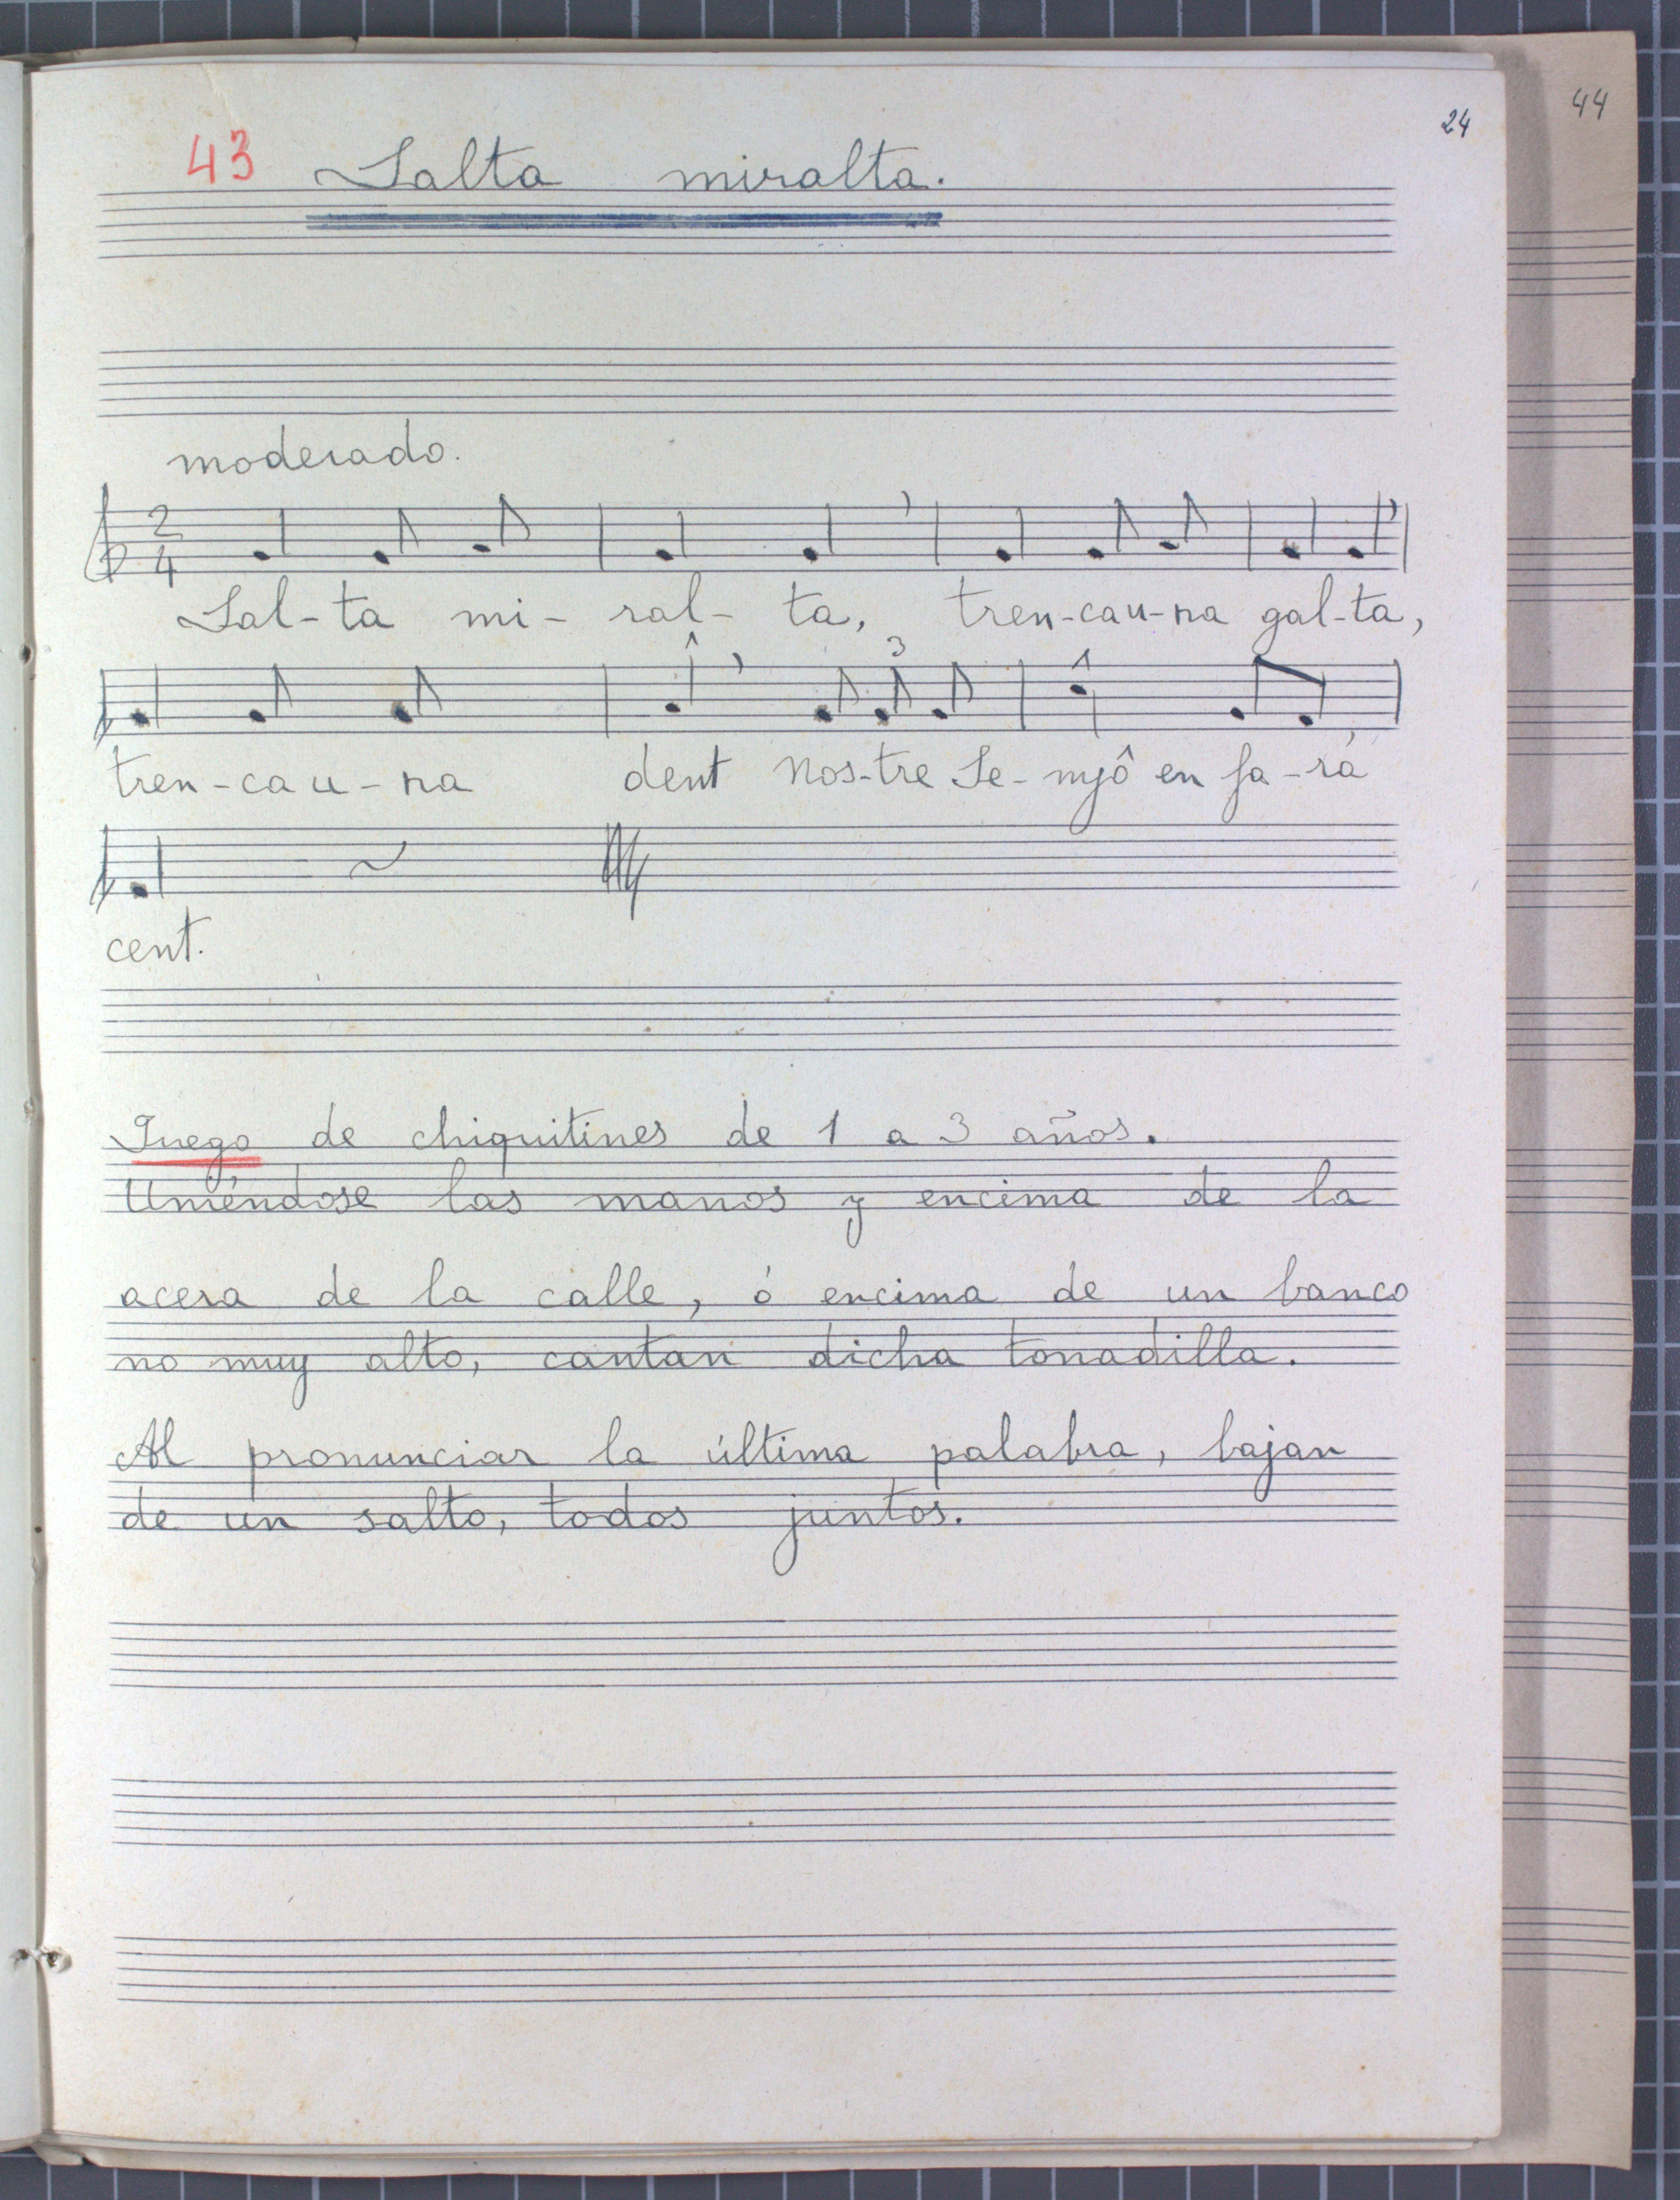 44
24
43 Salta miralta.
moderado.
2
4
Sal-ta mi-ral-ta, tren-cau-na gal-ta,
3
tren-cau-na dent Nos-tre Se-nyô en fa-rá
cent.
Juego de chiquitines de 1 a 3 años.
Uniéndose las manos y encima de la
acera de la calle, ó encima de un banco
no muy alto, cantan dicha tonadilla.
Al pronunciar la última palabra, bajan
de un salto, todos juntos.